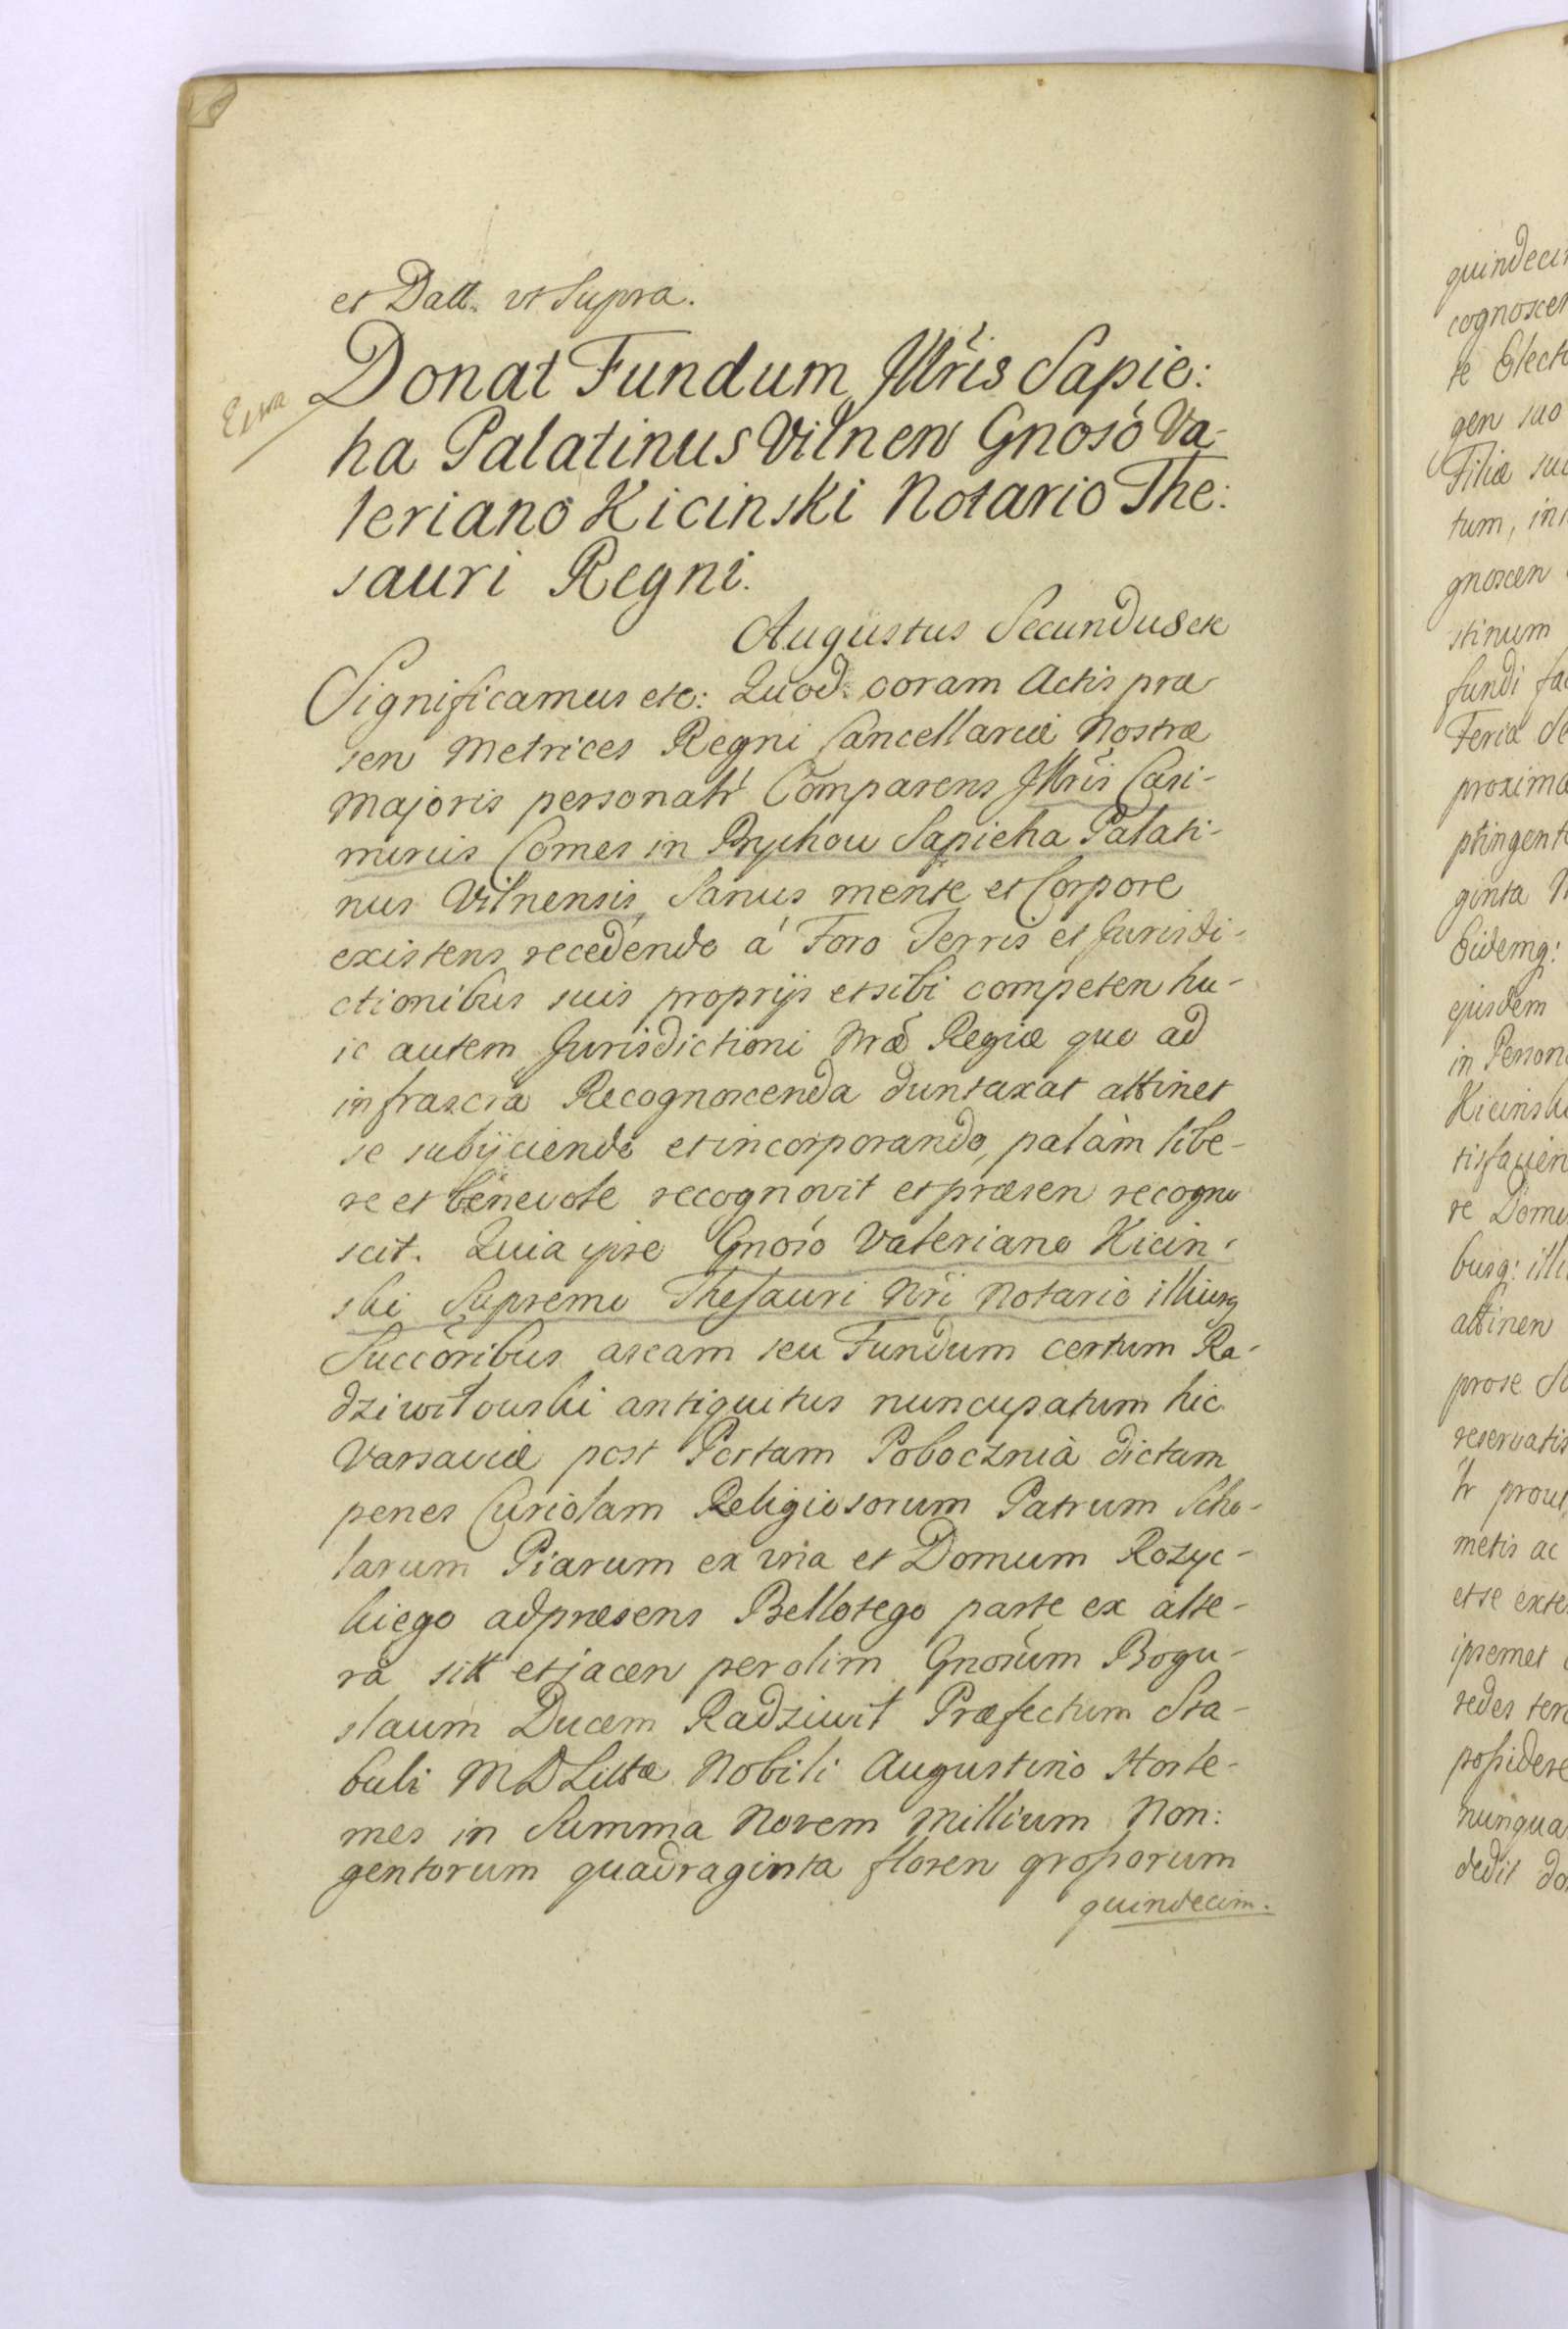 et Datt. vt Supra.
Donat Fundum Illris Sapie:
ha Palatinus Vilnen Gnoso Va-
leriano Kicinski Notario The:
sauri Regni.
Augustus Secundus etc
Significamus etc: Quod coram Actis præ
sen Metrices Regni Cancellariæ Nostræ
Majoris personalr Comparens Illris Casi-
mirus Comes in Bychow Sapieha Palati-
nus Vilnensis, Sanus mente et Corpore
existens recedendo á Foro Terris et Jurisdi-
ctionibus suis proprijs et sibi competen hu-
ic autem Jurisdictioni Nræ Regiæ quo ad
infrascra Recognoscenda duntaxat attinet
se subijciendo et incorporando, palàm libe-
re et benevole recognovit et præsen recogno
scit. Quia ipse Gnoso Valeriano Kicin-
ski Supremo Thesauri Nri Notario illiusq
Succoribus aream seu Fundum certum Ra-
dziwiłowski antiquitus nuncupatum hic
Varsaviæ post Portam Pobocznià dictam
penes Curiolam Religiosorum Patrum Scho-
larum Piarum ex vna et Domum Rozyc-
kiego adpræsens Bellotego parte ex alte-
rà sitt et jacen per olim Gnosum Bogu-
slaum Ducem Radziwił Præfectum Sta-
buli M D Littæ Nobili Augustino Horle-
mes in Summa Novem Millium Non:
gentorum quadraginta floren groszorum
quindecim.
quindeci
cognoscen
te Elect
gen suo
Filiæ su
tum, in
gnoscen
stinum
fundi fa
Feria de
proxima
ptingent
ginta
Eidemq:
ejusdem
in Person
Kicinsk
tisfacien
re Domi
burg: ill
attinen
prose
reservatis
lr prout
metis ac
et se exte
ipsemet
redes ten
possidere
nunqua
dedit do